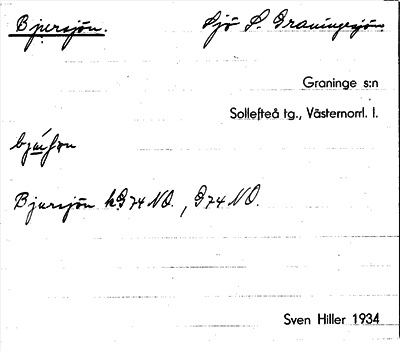 Bjursjön. Sjö S. Graningesjön.
Graninge s:n
Sollefteå tg., Västernorrl. l.
Bjursjön k G74 NO., G74 NO.
Sven Hiller 1934